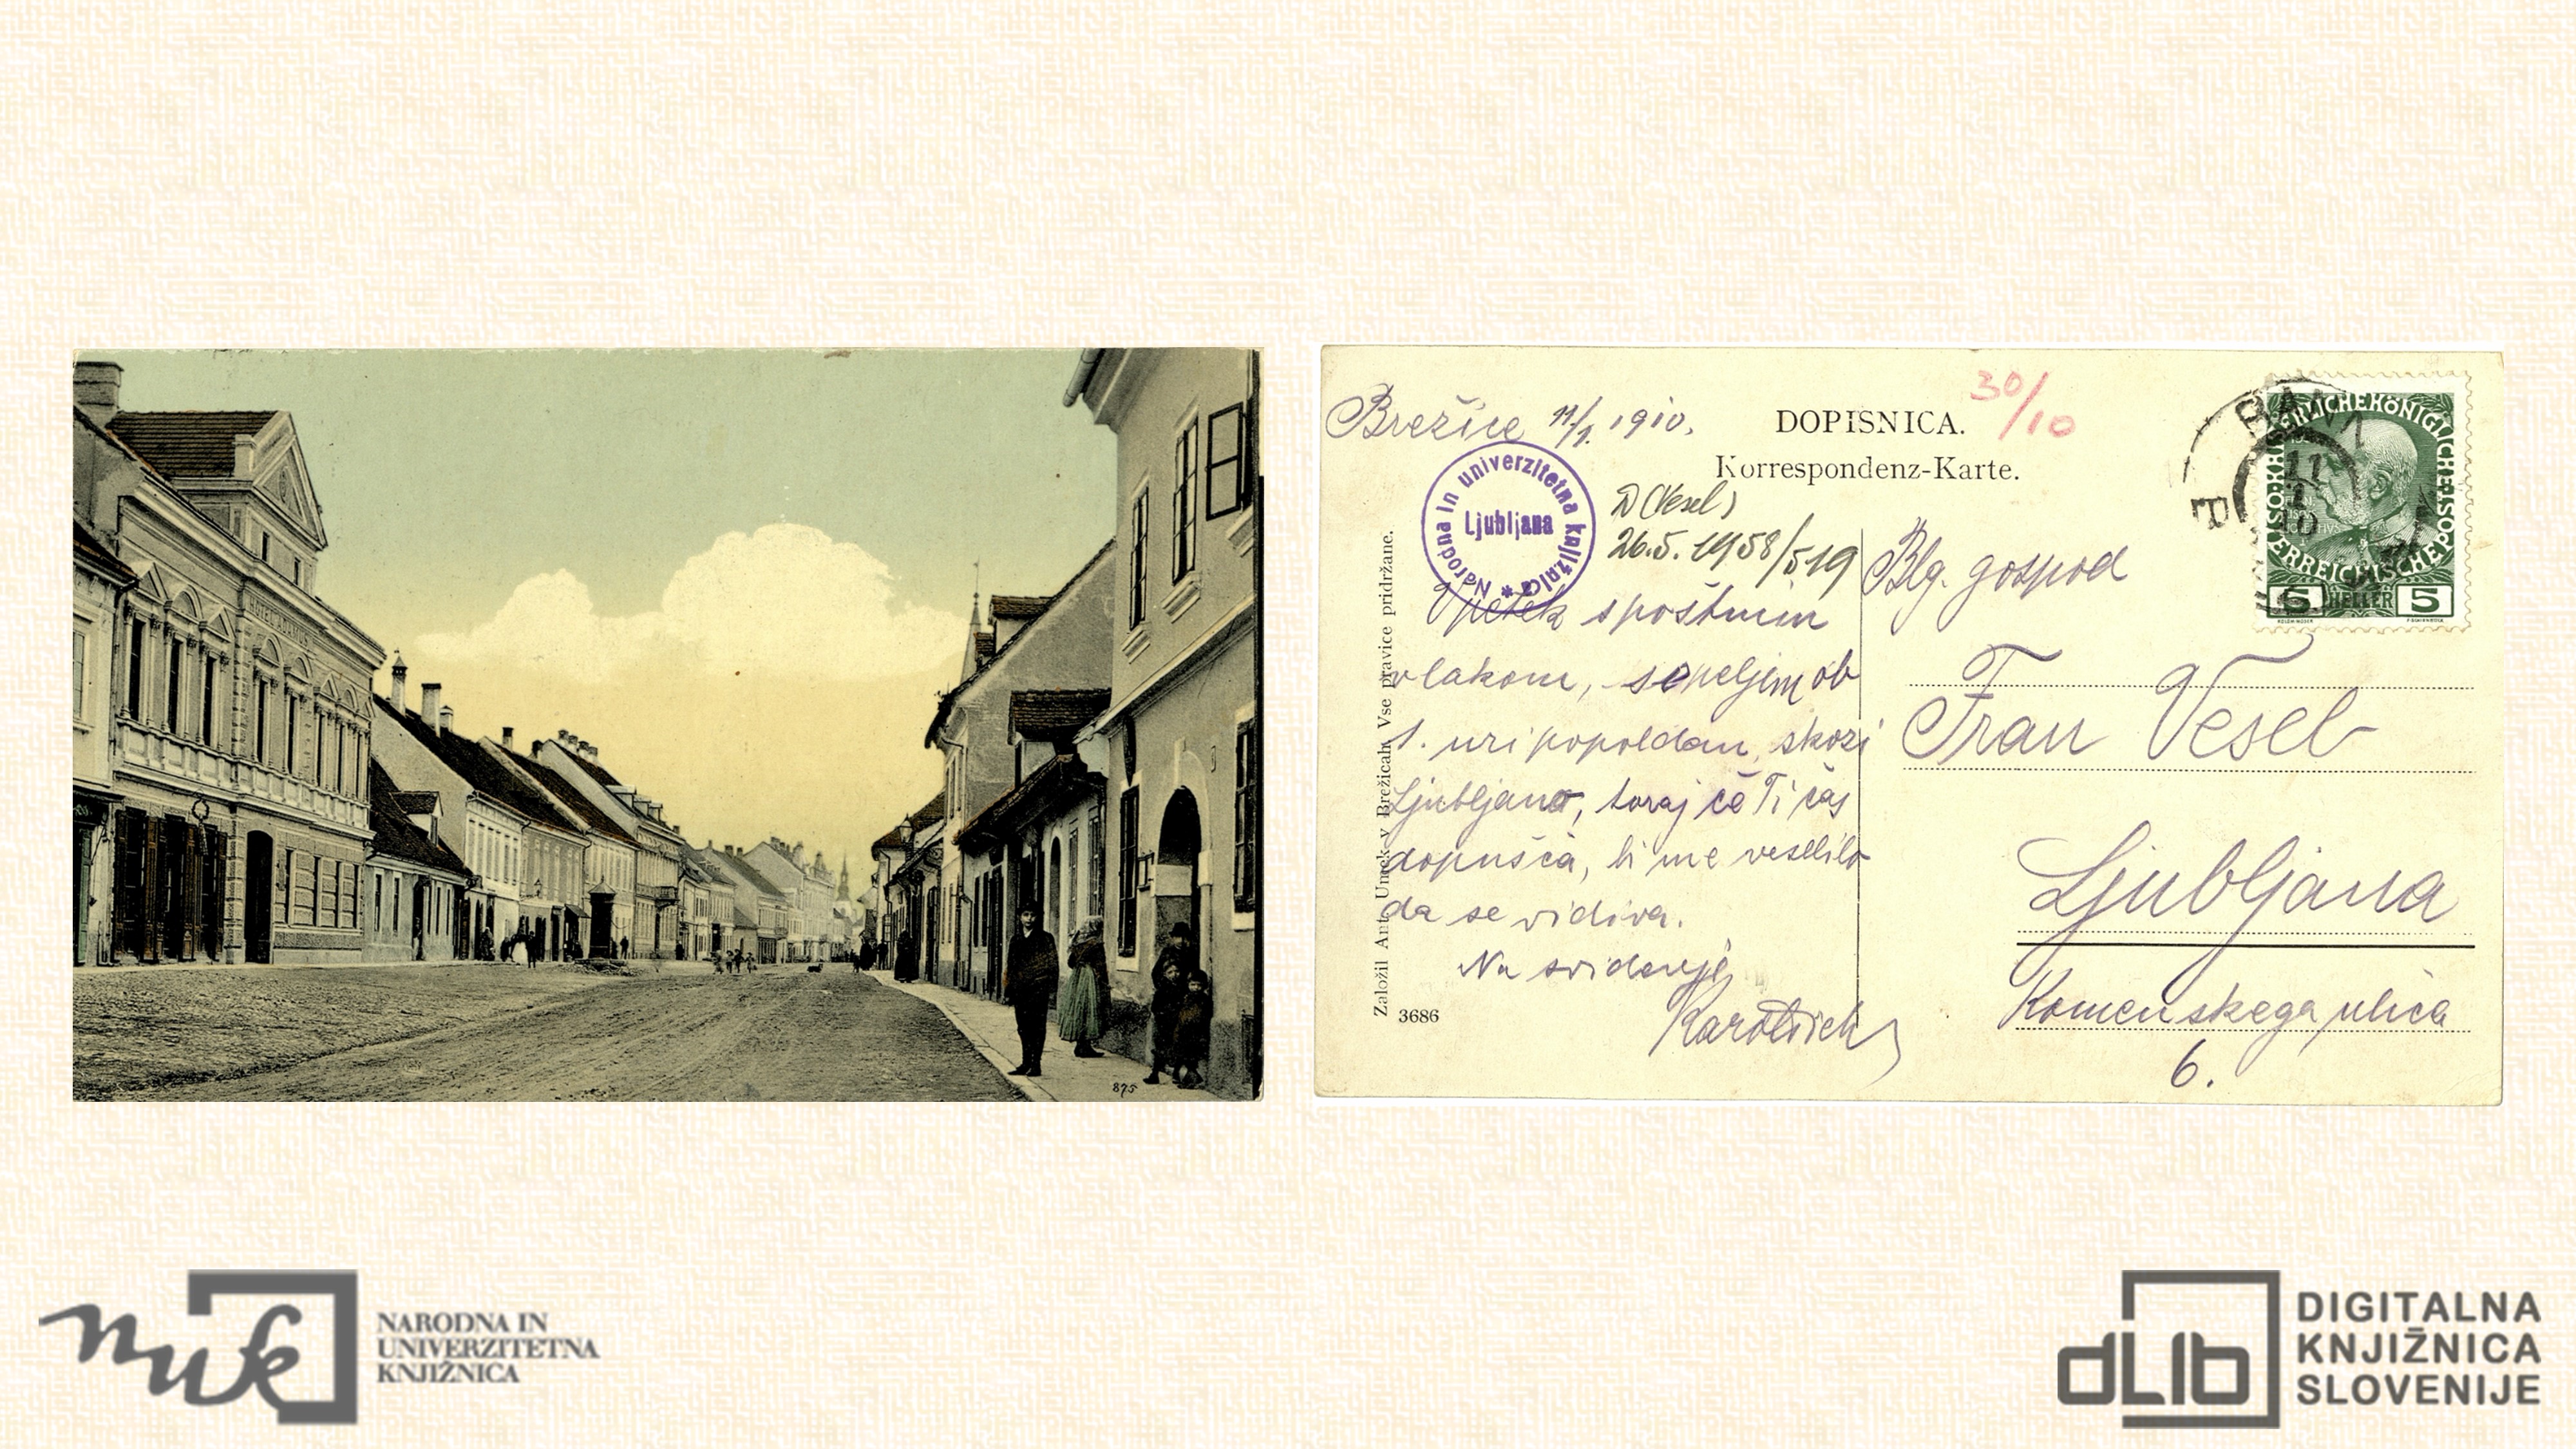 875
Brežice 11/1. 1910.
DOPISNICA.
Korrespondenz-Karte.
30/10
Narodna in univerzitetna knjižnica *
Ljubljana
D (Vesel)
26.5.1958/519
V petek s poštnim
vlakom, se peljem ob
1. uri popoldan, skozi
Ljubljano, toraj če Ti čas
dopušča, bi me veselilo
da se vidiva.
Na svidenje
Založil Ant. Umek v Brežicah. Vse pravice pridržane.
3686
RANN
11
1
10
5 HELLER 5
Blg. gospod
Fran Vesel
Ljubljana
Komenskega ulica
6.
nuk
NARODNA IN
UNIVERZITETNA
KNJIŽNICA
dLib
DIGITALNA
KNJIŽNICA
SLOVENIJE